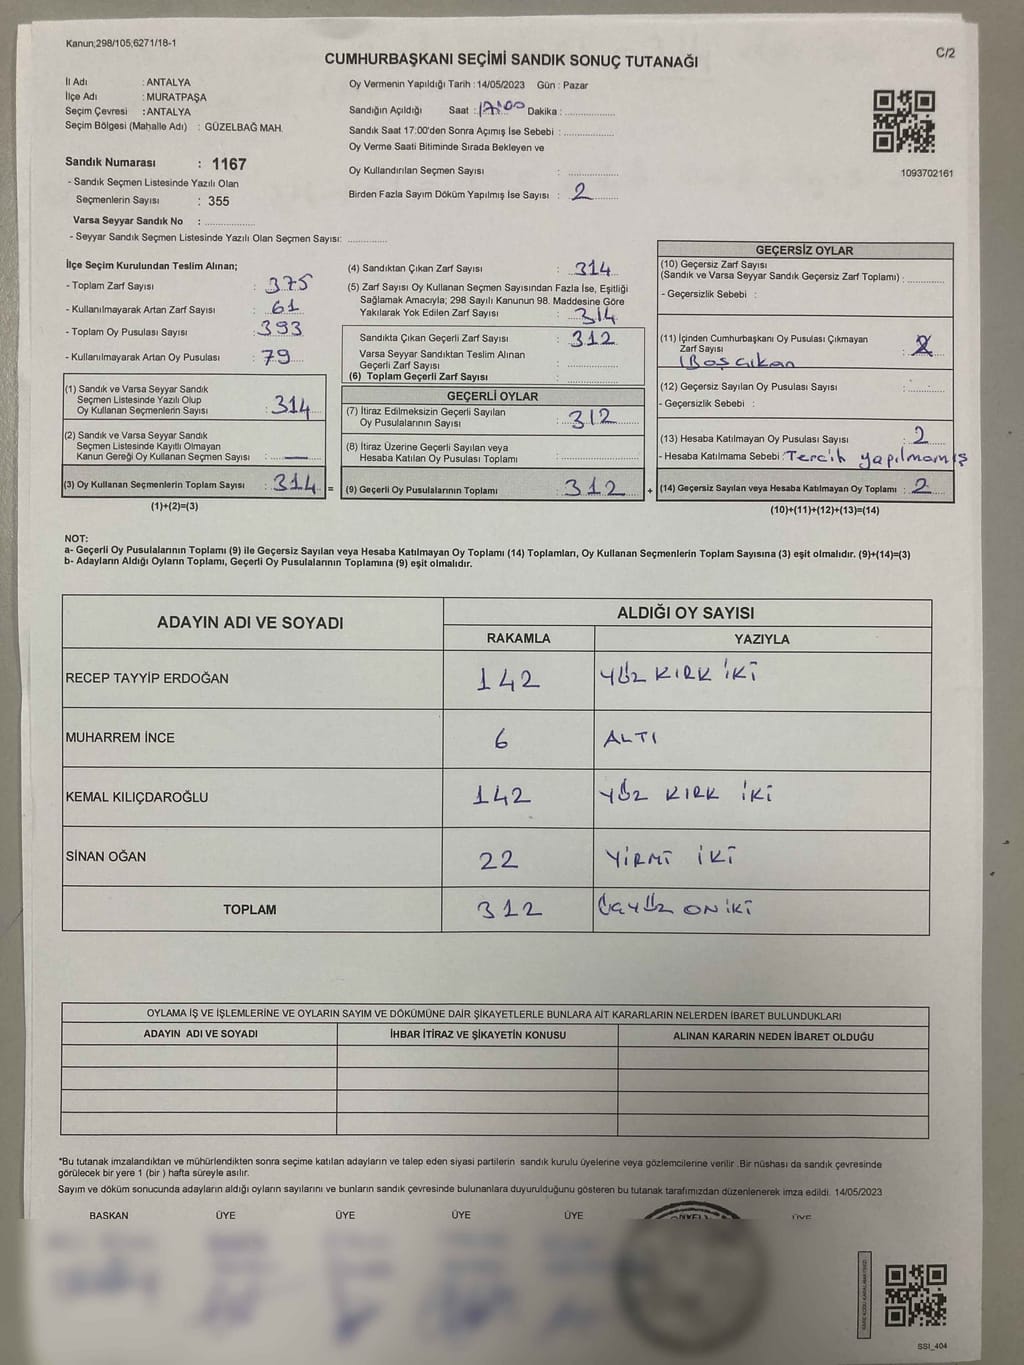 Kanun;298/105,6271/18-1
C/2
CUMHURBAŞKANI SEÇİMİ SANDIK SONUÇ TUTANAĞI
İl Adı : ANTALYA
İlçe Adı : MURATPAŞA
Seçim Çevresi : ANTALYA
Seçim Bölgesi (Mahalle Adı) : GÜZELBAĞ MAH.
Sandık Numarası : 1167
- Sandık Seçmen Listesinde Yazılı Olan
Seçmenlerin Sayısı : 355
Varsa Seyyar Sandık No : ................
- Seyyar Sandık Seçmen Listesinde Yazılı Olan Seçmen Sayısı: ............
Oy Vermenin Yapıldığı Tarih : 14/05/2023 Gün : Pazar
Sandığın Açıldığı Saat : 17:00 Dakika : ...............
Sandık Saat 17:00'den Sonra Açımış İse Sebebi : ...............
Oy Verme Saati Bitiminde Sırada Bekleyen ve
Oy Kullandırılan Seçmen Sayısı : ...............
Birden Fazla Sayım Döküm Yapılmış İse Sayısı : 2
1093702161
İlçe Seçim Kurulundan Teslim Alınan;
- Toplam Zarf Sayısı : 375
- Kullanılmayarak Artan Zarf Sayısı : 61
- Toplam Oy Pusulası Sayısı : 393
- Kullanılmayarak Artan Oy Pusulası : 79
(1) Sandık ve Varsa Seyyar Sandık
Seçmen Listesinde Yazılı Olup
Oy Kullanan Seçmenlerin Sayısı : 314
(2) Sandık ve Varsa Seyyar Sandık
Seçmen Listesinde Kayıtlı Olmayan
Kanun Gereği Oy Kullanan Seçmen Sayısı : —
(3) Oy Kullanan Seçmenlerin Toplam Sayısı : 314 =
(1)+(2)=(3)
(4) Sandıktan Çıkan Zarf Sayısı : 314
(5) Zarf Sayısı Oy Kullanan Seçmen Sayısından Fazla İse, Eşitliği
Sağlamak Amacıyla; 298 Sayılı Kanunun 98. Maddesine Göre
Yakılarak Yok Edilen Zarf Sayısı : 314
Sandıkta Çıkan Geçerli Zarf Sayısı : 312
Varsa Seyyar Sandıktan Teslim Alınan
Geçerli Zarf Sayısı : ...............
(6) Toplam Geçerli Zarf Sayısı : ...............
GEÇERLİ OYLAR
(7) İtiraz Edilmeksizin Geçerli Sayılan
Oy Pusulalarının Sayısı : 312
(8) İtiraz Üzerine Geçerli Sayılan veya
Hesaba Katılan Oy Pusulası Toplamı : ...............
(9) Geçerli Oy Pusulalarının Toplamı : 312 +
GEÇERSİZ OYLAR
(10) Geçersiz Zarf Sayısı
(Sandık ve Varsa Seyyar Sandık Geçersiz Zarf Toplamı) : ...........
- Geçersizlik Sebebi :
(11) İçinden Cumhurbaşkanı Oy Pusulası Çıkmayan
Zarf Sayısı : 2
(Boş çıkan
(12) Geçersiz Sayılan Oy Pusulası Sayısı : ...........
- Geçersizlik Sebebi :
(13) Hesaba Katılmayan Oy Pusulası Sayısı : 2
- Hesaba Katılmama Sebebi : Tercih yapılmamış
(14) Geçersiz Sayılan veya Hesaba Katılmayan Oy Toplamı : 2
(10)+(11)+(12)+(13)=(14)
NOT:
a- Geçerli Oy Pusulalarının Toplamı (9) ile Geçersiz Sayılan veya Hesaba Katılmayan Oy Toplamı (14) Toplamları, Oy Kullanan Seçmenlerin Toplam Sayısına (3) eşit olmalıdır. (9)+(14)=(3)
b- Adayların Aldığı Oyların Toplamı, Geçerli Oy Pusulalarının Toplamına (9) eşit olmalıdır.
ADAYIN ADI VE SOYADI ALDIĞI OY SAYISI
RAKAMLA YAZIYLA
RECEP TAYYİP ERDOĞAN 142 YÜZ KIRK İKİ
MUHARREM İNCE 6 ALTI
KEMAL KILIÇDAROĞLU 142 YÜZ KIRK İKİ
SİNAN OĞAN 22 YİRMİ İKİ
TOPLAM 312 ÜÇYÜZ ONİKİ
OYLAMA İŞ VE İŞLEMLERİNE VE OYLARIN SAYIM VE DÖKÜMÜNE DAİR ŞİKAYETLERLE BUNLARA AİT KARARLARIN NELERDEN İBARET BULUNDUKLARI
ADAYIN ADI VE SOYADI İHBAR İTİRAZ VE ŞİKAYETİN KONUSU ALINAN KARARIN NEDEN İBARET OLDUĞU
*Bu tutanak imzalandıktan ve mühürlendikten sonra seçime katılan adayların ve talep eden siyasi partilerin sandık kurulu üyelerine veya gözlemcilerine verilir .Bir nüshası da sandık çevresinde
görülecek bir yere 1 (bir ) hafta süreyle asılır.
Sayım ve döküm sonucunda adayların aldığı oyların sayılarını ve bunların sandık çevresinde bulunanlara duyurulduğunu gösteren bu tutanak tarafımızdan düzenlenerek imza edildi. 14/05/2023
BAŞKAN ÜYE ÜYE ÜYE ÜYE ÜYE
SSI_404